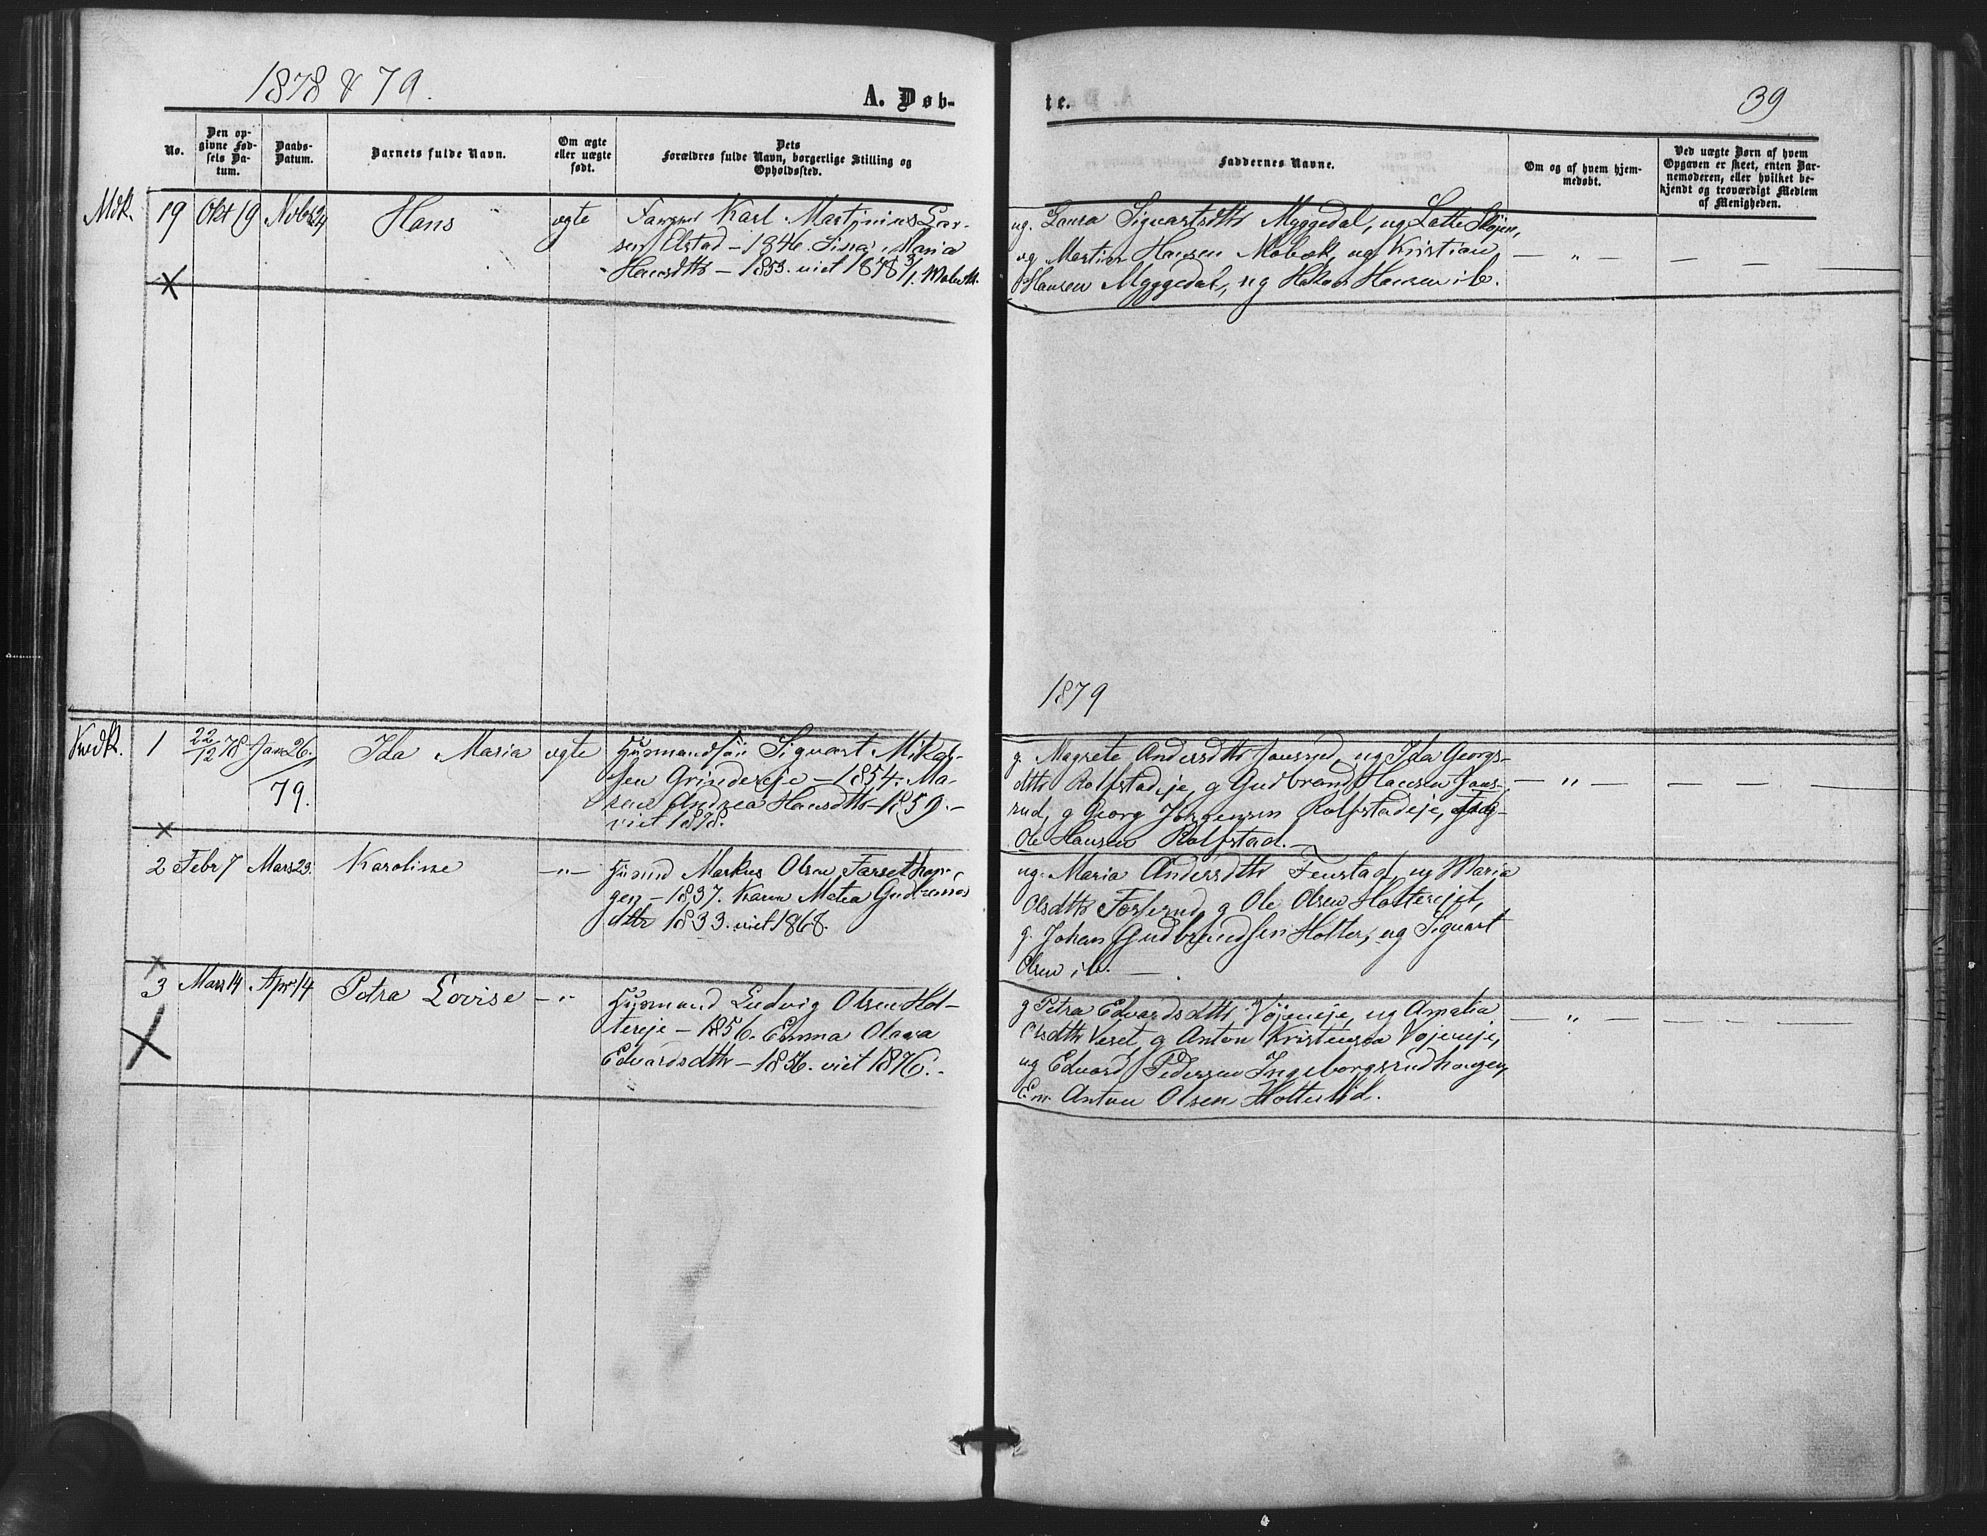 1878 & 79.
A. Døb-
te.
39
No.
Den op-
givne Fød-
sels Da-
tum.
Daabs-
Datum.
Barnets fulde Navn.
Om ægte
eller uægte
født.
Dets
Forældres fulde Navn, borgerlige Stilling og
Opholdssted.
Faddernes Navne.
Om og af hvem hjem-
medøbt.
Ved uægte Børn af hvem
Opgaven er skeet, enten Bar-
nemoderen, eller hvilket be-
kjendt og troværdigt Medlem
af Menigheden.
Mdk.
19
Okt 19
Novbr 24
Hans
ægte
Karl Martinius Lar-
sen Elstad – 1846. Maria
Hansdtr – 1853. viet 1878
ug. Laura Siguartsdtr Myggedal, ug Lotte Skøjen,
ug Martin Hansen Mobæk, ug Kristian
Hansen Myggedal, ug Hansen ib.
— " — — — —
1879
Kvdk.
1
22/12 78
Jan 26.
79.
Ida Maria
ægte
Siguart Mikal-
sen Grindereje – 1854. Ma-
Andrea Hansdtr – 1859. –
viet 1878.
g. Magrete Andersdtr ug Ida Georgs-
dtr Rolfstadeje, g Gudbrand Hansen
rud, g Georg Jørgensen Rolfstadeje,
Ole Hansen Rolfstad. –
— " — — — —
2
Febr 7
Mars 23.
Karoline
— " —
Husmd Markus Olsen
gen – 1837. Karen Matea
dtr 1833. viet 1868.
ug. Maria Andersdtr Fenstad, ug Maria
Olsdtr g Ole Olsen Holterejet,
g. Johan Gudbrandsen Holter, ug Siguart
Olsen ib. —
3
Mars 14
Apr 14
Petra Lovise
— " —
Husmand Ludvig Olsen Hol-
tereje – 1856. Emma Olava
Edvardsdtr – 1856. viet 1876. –
g Petra Edvardsdtr Vøjeneje, ug Amalia
Olsdtr Veset, g Anton Kristensen Vøjeneje,
ug Edvard Pedersen Ingeborgsrudhagen,
Em. Anton Olsen Holterlid.
— " — — — —